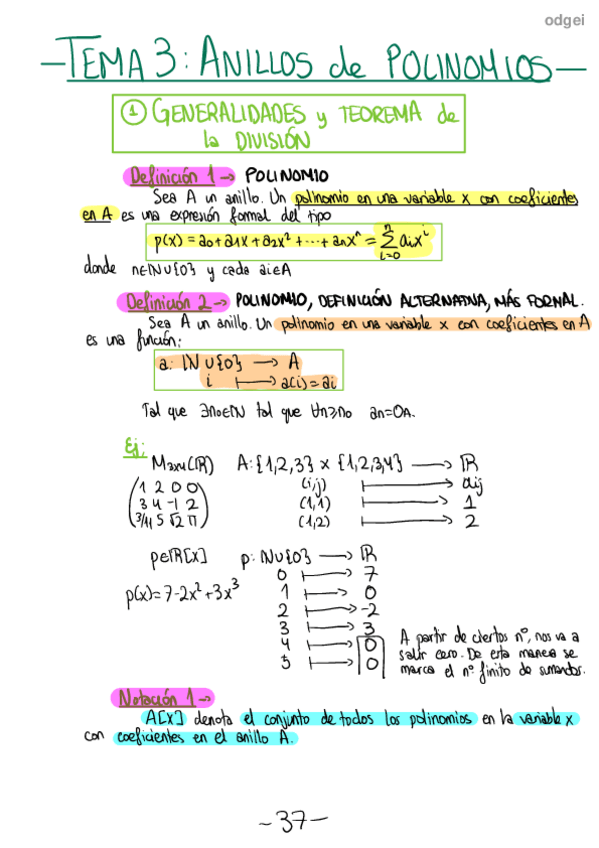 odgei
-TEMA 3: ANILLOS de POLINOMIOS-
① GENERALIDADES y TEOREMA de
la DIVISIÓN
Definición 1 → POLINOMIO
Sea A un anillo. Un polinomio en una variable x con coeficientes
en A es una expresión formal del tipo
p(x) = a₀ + a₁x + a₂x² + ... + aₙxⁿ = Σⁿᵢ₌₀ aᵢxⁱ
donde n∈ℕ∪{0} y cada aᵢ∈A
Definición 2 → POLINOMIO, DEFINICIÓN ALTERNATIVA, MÁS FORMAL.
Sea A un anillo. Un polinomio en una variable x con coeficientes en A
es una función:
a: ℕ∪{0} → A
i ↦ a(i) = aᵢ
Tal que ∃n₀∈ℕ tal que ∀n≥n₀ aₙ=0A.
Ej:
M₃ₓ₄(ℝ) A: {1,2,3} x {1,2,3,4} → ℝ
(1 2 0 0) (i,j) ↦ aij
(3 4 -1 2) (1,1) ↦ 1
(3/4 5 √2 π) (1,2) ↦ 2
p∈ℝ[x] p: ℕ∪{0} → ℝ
0 ↦ 7
p(x)=7-2x²+3x³ 1 ↦ 0
2 ↦ -2
3 ↦ 3
4 ↦ 0
5 ↦ 0
A partir de ciertos nº, nos va a
salir cero. De esta manera se
marca el nº finito de sumandos.
Notación 1 →
A[x] denota el conjunto de todos los polinomios en la variable x
con coeficientes en el anillo A.
-37-